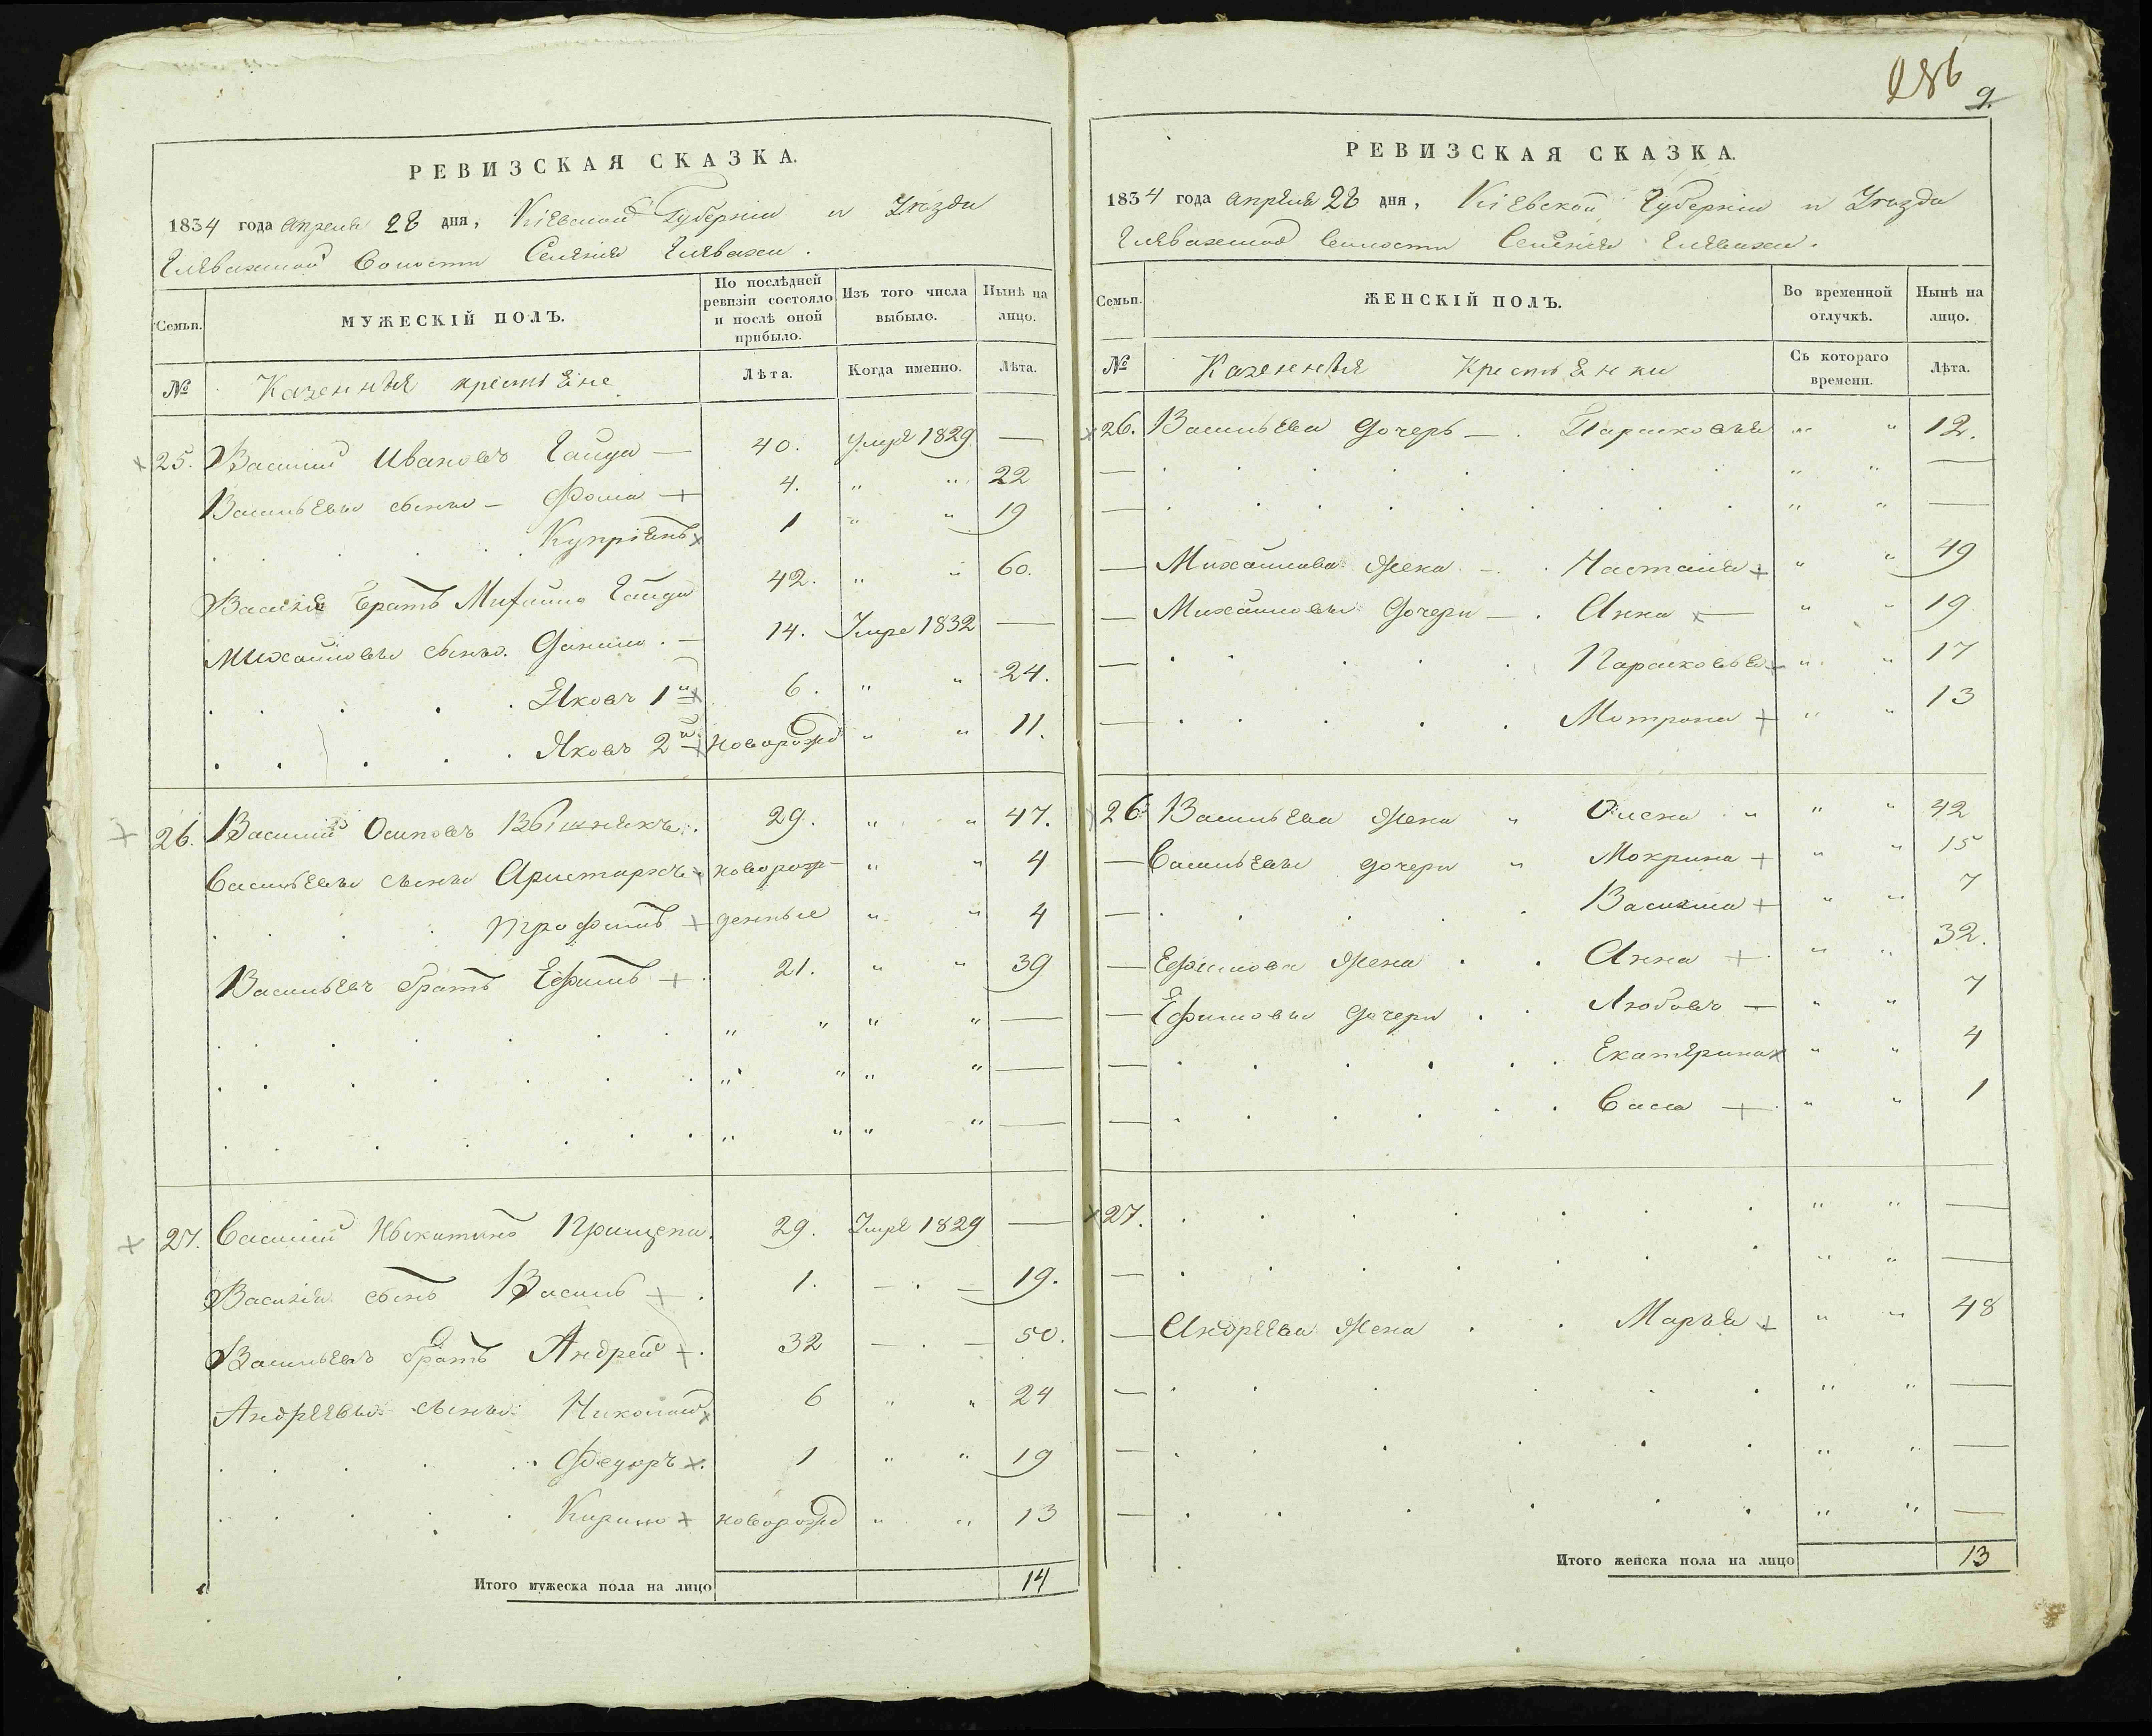 РЕВИЗСКАЯ СКАЗКА.
1834 года апреля 28 дня, Кіевской Губерніи и Уезда
Глевахской Волости Селенія Глевахи.
Семьи.
МУЖЕСКІЙ ПОЛЪ.
По послѣдней ревизіи состояло и послѣ оной прибыло.
Изъ того числа выбыло.
Нынѣ на лицо.
№ Казенные крестьяне Лѣта. Когда именно. Лѣта.
25. Василий Ивановъ Гайда — 40. умре 1829 —
Васильевы сыны – Фома + 4. " " 22
Купріянъ 1 " " 19
Василія братъ Михайло Гайда 42. " " 60.
Михайловы сыны. Данило. — 14. Умре 1832 —
Яковъ 1й 6. " " 24.
Яковъ 2й новорожд " " 11.
26. Василий Осиповъ 29. " " 47.
Васильевы сыны Аристархъ новорож- " " 4
Трофимъ + денные " " 4
Васильевъ братъ Ефимъ + 21. " " 39
" " " " —
" " " " —
" " " " —
27. Василий Никитинъ Прищепа. 29. Умре 1829 —
Василія сынъ Василь + 1. — . — 19.
Васильевъ братъ Андрей + 32 — . — 50.
Андреевы сыны Николай 6 " " 24
Федоръ 1 " " 19
Кирило + новорожд " " 13
Итого мужеска пола на лицо 14
286
9.
РЕВИЗСКАЯ СКАЗКА.
1834 года апреля 28 дня, Кіевской Губерніи и Уезда
Глевахской Волости Селенія Глевахи.
Семьи.
ЖЕНСКІЙ ПОЛЪ.
Во временной отлучкѣ.
Нынѣ на лицо.
№ Казенные Крестьянки Съ котораго времени. Лѣта.
26. Васильева дочерь — . Парасковья " " 12.
— " " —
— " " —
— Михайлова жена — . Настасія + " " 49
— Михайловы дочери — . Анна — " " 19
— Парасковья " " 17
— Мотрона + " " 13
26 Васильева жена " Олена " " " 42
— Васильевы дочери " Мокрина + " " 15
— Василиса + " " 7
— Ефимова жена . . Анна + " " 32.
— Ефимовы дочери . . Любовъ — " " 7
— Екатерина " " 4
— Васса + " " 1
27. " " —
— " " —
— Андреева жена . . Марья + " " 48
— " " —
— " " —
— " " —
Итого женска пола на лицо 13